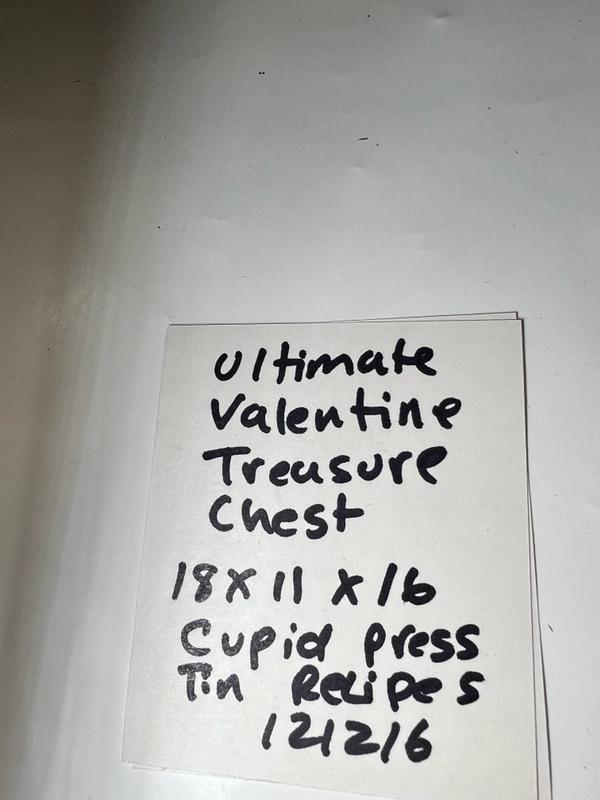 Ultimate
Valentine
Treasure
Chest
18 X 11 X 16
Cupid press
Tin Recipes
121216